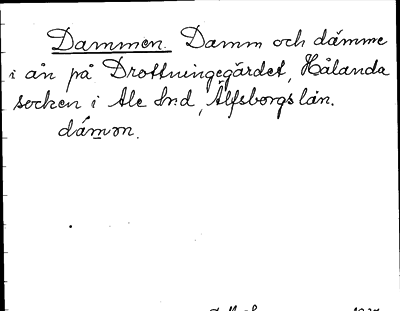 Dammen. Damm och dämme
i ån på Drottningegärdet, Hålanda
socken i Ale hd, Älfsborgs län.
dám̲on.